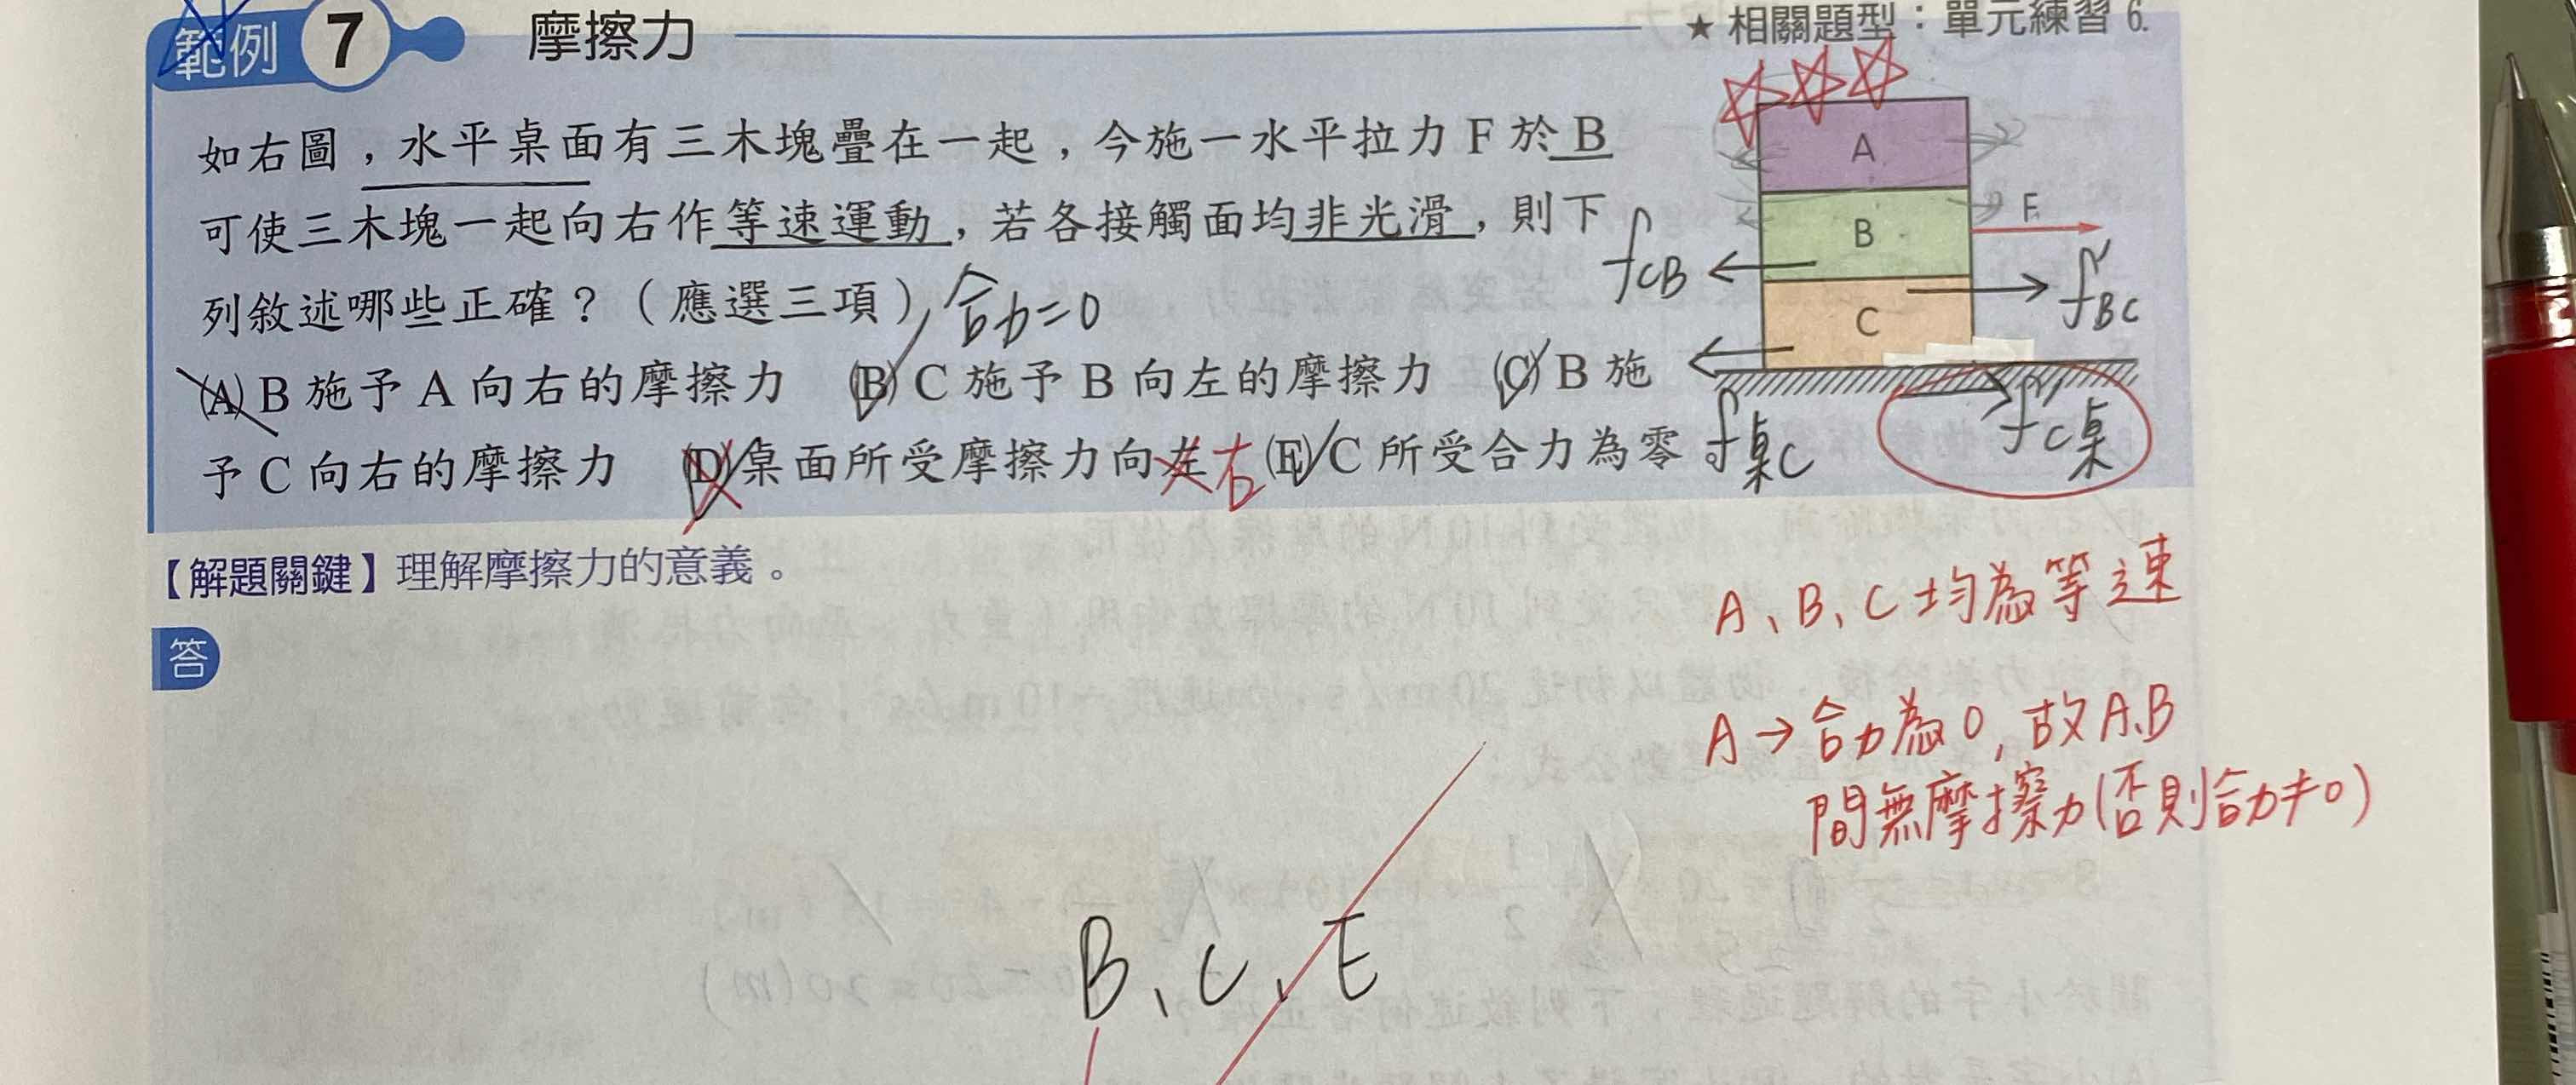 範例 7 摩擦力 ★相關題型：單元練習 6.
如右圖，水平桌面有三木塊疊在一起，今施一水平拉力 F 於 B
可使三木塊一起向右作等速運動，若各接觸面均非光滑，則下
列敘述哪些正確？（應選三項）合力=0
(A) B 施予 A 向右的摩擦力 (B) C 施予 B 向左的摩擦力 (C) B 施
予 C 向右的摩擦力 (D) 桌面所受摩擦力向左 右 (E) C 所受合力為零
A
B
F
fCB
f'BC
C
f桌C
f'C桌
【解題關鍵】理解摩擦力的意義。
答
A、B、C 均為等速
A→合力為0, 故A、B
間無摩擦力(否則合力≠0)
B、C、E